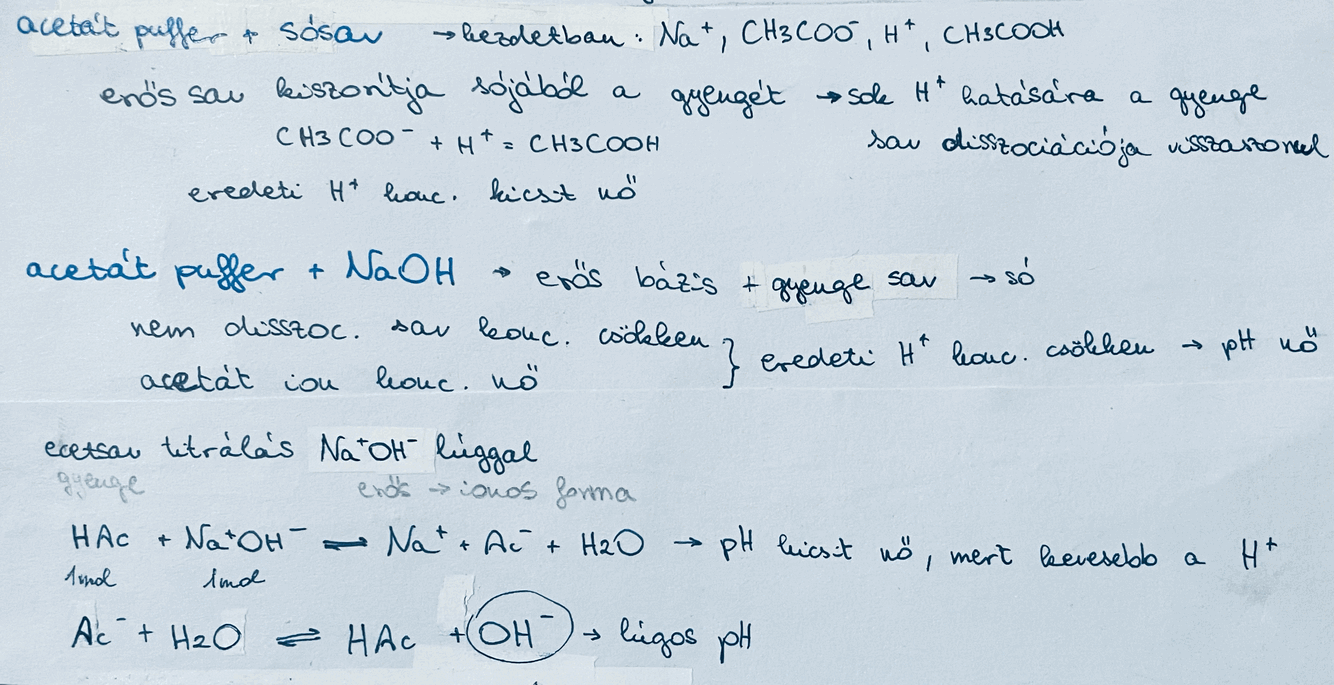 acetát puffer + sósav → kezdetban : Na⁺, CH3COO⁻, H⁺, CH3COOH
erős sav kiszorítja sójából a gyengét → sok H⁺ hatására a gyenge
CH3COO⁻ + H⁺ = CH3COOH sav disszociációja visszaszorul
eredeti H⁺ konc. kicsit nő
acetát puffer + NaOH → erős bázis + gyenge sav → só
nem disszoc. sav konc. csökken } eredeti H⁺ konc. csökken → pH nő
acetát ion konc. nő
ecetsav titrálás Na⁺OH⁻ lúggal
gyenge erős → ionos forma
HAc + Na⁺OH⁻ ⇌ Na⁺ + Ac⁻ + H2O → pH kicsit nő, mert kevesebb a H⁺
1mol 1mol
Ac⁻ + H2O ⇌ HAc + OH⁻ → lúgos pH